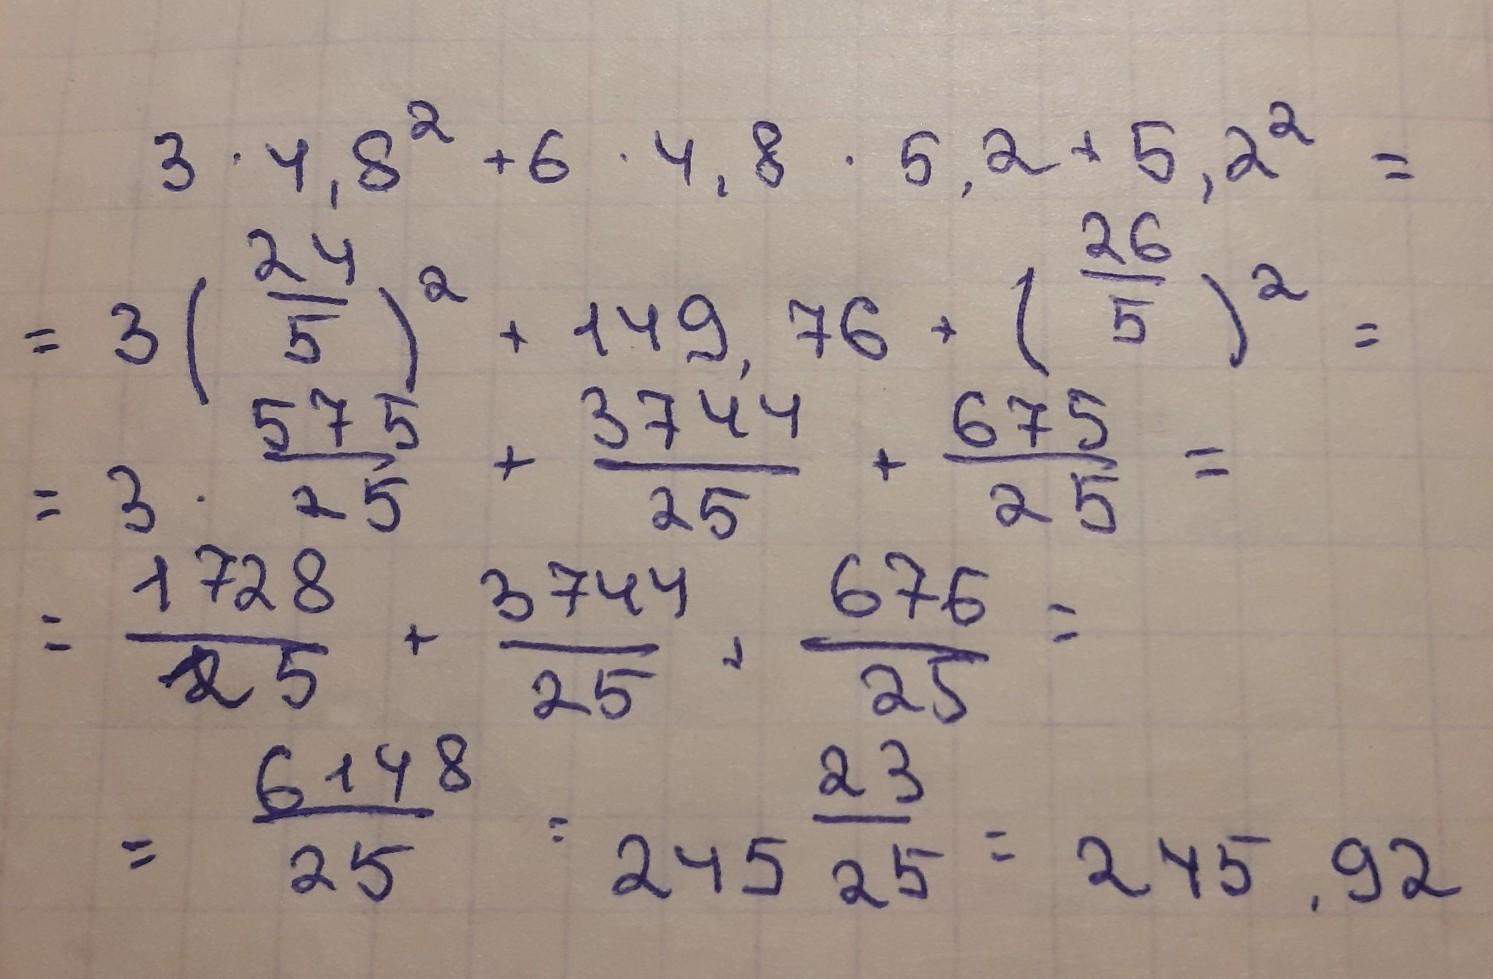 3 · 4,8² + 6 · 4,8 · 5,2 + 5,2² =
= 3(24/5)² + 149,76 + (26/5)² =
= 3 · 575/25 + 3744/25 + 675/25 =
= 1728/25 + 3744/25 + 676/25 =
= 6148/25 = 245 23/25 = 245,92